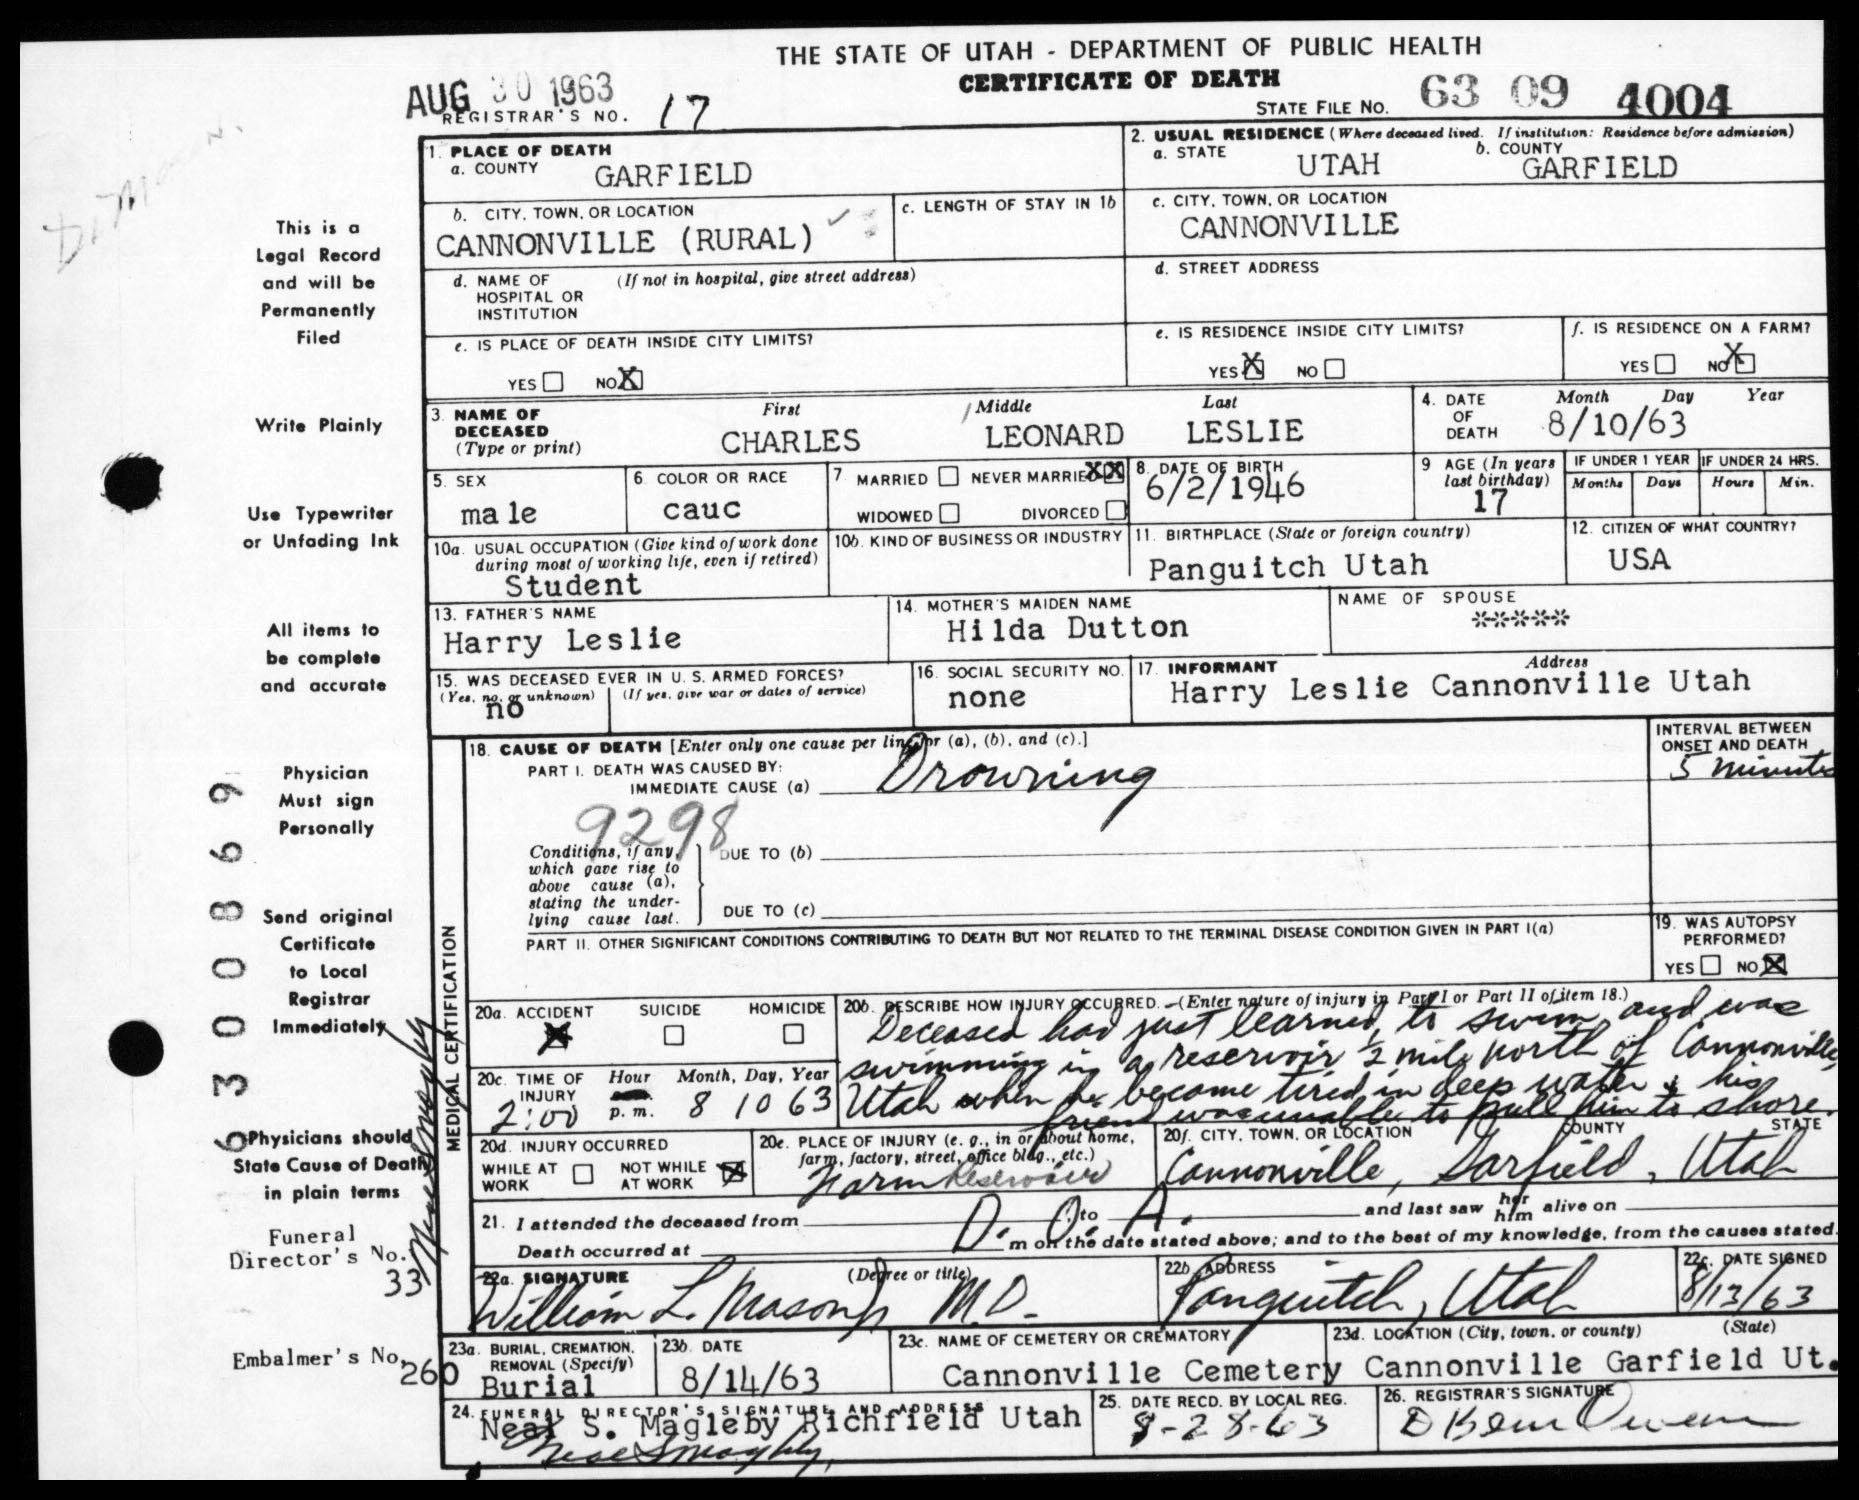 THE STATE OF UTAH - DEPARTMENT OF PUBLIC HEALTH
CERTIFICATE OF DEATH
AUG 30 1963
REGISTRAR'S NO. 17
STATE FILE NO. 63 09 4004
1. PLACE OF DEATH
a. COUNTY GARFIELD
2. USUAL RESIDENCE (Where deceased lived. If institution: Residence before admission)
a. STATE UTAH b. COUNTY GARFIELD
b. CITY, TOWN, OR LOCATION
CANNONVILLE (RURAL)
c. LENGTH OF STAY IN 1b
c. CITY, TOWN, OR LOCATION
CANNONVILLE
d. NAME OF HOSPITAL OR INSTITUTION (If not in hospital, give street address)
d. STREET ADDRESS
e. IS PLACE OF DEATH INSIDE CITY LIMITS?
YES NO X
e. IS RESIDENCE INSIDE CITY LIMITS?
YES X NO
f. IS RESIDENCE ON A FARM?
YES NO X
3. NAME OF DECEASED (Type or print)
First Middle Last
CHARLES LEONARD LESLIE
4. DATE OF DEATH
Month Day Year
8/10/63
5. SEX
male
6. COLOR OR RACE
cauc
7 MARRIED NEVER MARRIED XX
WIDOWED DIVORCED
8. DATE OF BIRTH
6/2/1946
9 AGE (In years last birthday)
17
IF UNDER 1 YEAR
Months Days
IF UNDER 24 HRS.
Hours Min.
10a. USUAL OCCUPATION (Give kind of work done during most of working life, even if retired)
Student
10b. KIND OF BUSINESS OR INDUSTRY
11. BIRTHPLACE (State or foreign country)
Panguitch Utah
12. CITIZEN OF WHAT COUNTRY?
USA
13. FATHER'S NAME
Harry Leslie
14. MOTHER'S MAIDEN NAME
Hilda Dutton
NAME OF SPOUSE
*****
15. WAS DECEASED EVER IN U. S. ARMED FORCES?
(Yes, no, or unknown) (If yes, give war or dates of service)
no
16. SOCIAL SECURITY NO.
none
17. INFORMANT Address
Harry Leslie Cannonville Utah
MEDICAL CERTIFICATION
18. CAUSE OF DEATH [Enter only one cause per line for (a), (b), and (c).]
PART I. DEATH WAS CAUSED BY:
IMMEDIATE CAUSE (a) Drowning
INTERVAL BETWEEN ONSET AND DEATH
5 minutes
9298
Conditions, if any, which gave rise to above cause (a), stating the underlying cause last.
DUE TO (b)
DUE TO (c)
PART II. OTHER SIGNIFICANT CONDITIONS CONTRIBUTING TO DEATH BUT NOT RELATED TO THE TERMINAL DISEASE CONDITION GIVEN IN PART I(a)
19. WAS AUTOPSY PERFORMED?
YES NO X
20a. ACCIDENT SUICIDE HOMICIDE
X
20b. DESCRIBE HOW INJURY OCCURRED. (Enter nature of injury in Part I or Part II of item 18.)
Deceased had just learned to swim and was
swimming in a reservoir ½ mile north of Cannonville,
Utah when he become tired in deep water & his
friend was unable to pull him to shore.
20c. TIME OF INJURY
Hour Month, Day, Year
2:00 p. m. 8 10 63
20d. INJURY OCCURRED
WHILE AT WORK NOT WHILE AT WORK X
20e. PLACE OF INJURY (e. g., in or about home, farm, factory, street, office bldg., etc.)
Farm Reservoir
20f. CITY, TOWN, OR LOCATION COUNTY STATE
Cannonville, Garfield, Utah
21. I attended the deceased from D. O. A. to and last saw her him alive on
Death occurred at m on the date stated above; and to the best of my knowledge, from the causes stated.
22a. SIGNATURE (Degree or title)
William L. Mason Jr M.D.
22b. ADDRESS
Panguitch, Utah
22c. DATE SIGNED
8/13/63
23a. BURIAL, CREMATION, REMOVAL (Specify)
Burial
23b. DATE
8/14/63
23c. NAME OF CEMETERY OR CREMATORY
Cannonville Cemetery
23d. LOCATION (City, town, or county) (State)
Cannonville Garfield Ut.
24. FUNERAL DIRECTOR'S SIGNATURE AND ADDRESS
Neal S. Magleby Richfield Utah
Neal S Magleby
25. DATE RECD. BY LOCAL REG.
8-28-63
26. REGISTRAR'S SIGNATURE
This is a
Legal Record
and will be
Permanently
Filed
Write Plainly
Use Typewriter
or Unfading Ink
All items to
be complete
and accurate
Physician
Must sign
Personally
Send original
Certificate
to Local
Registrar
Immediately
Physicians should
State Cause of Death
in plain terms
Funeral
Director's No.
33
Embalmer's No.
260
6300869
Neal S Magleby